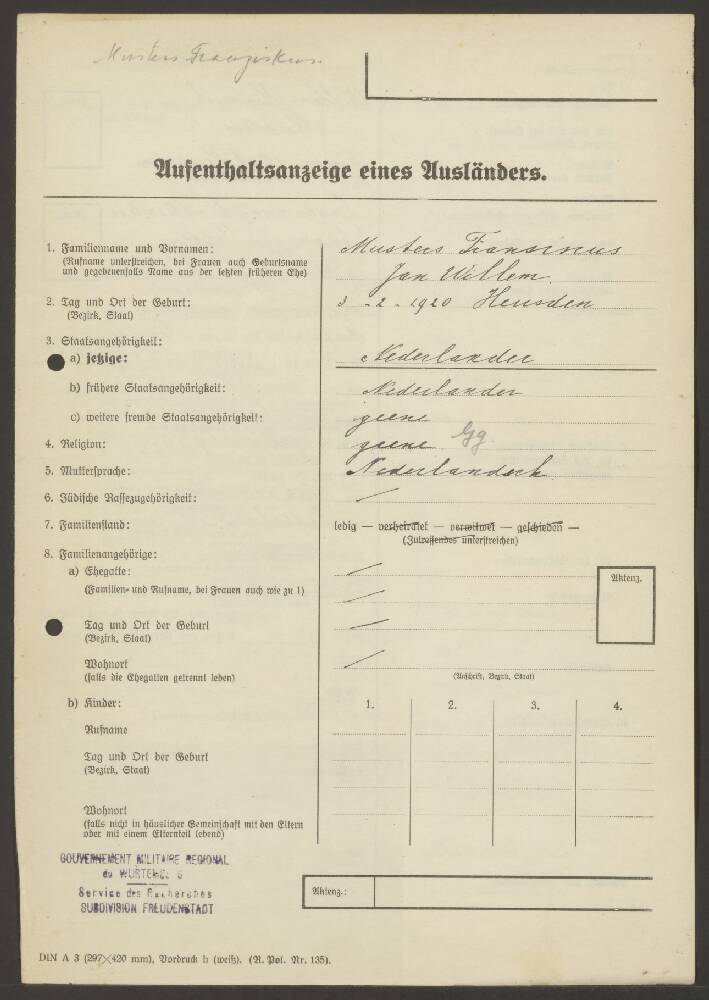 Musters Franziskus.
Aufenthaltsanzeige eines Ausländers.
1. Familienname und Vornamen:
(Rufname unterstreichen, bei Frauen auch Geburtsname
und gegebenenfalls Name aus der letzten früheren Ehe)
Musters Fransinus
Jan Willem
2. Tag und Ort der Geburt:
(Bezirk, Staat)
3 - 2 - 1920 Heusden
3. Staatsangehörigkeit:
a) jetzige:
Nederlander
b) frühere Staatsangehörigkeit:
Nederlander
c) weitere fremde Staatsangehörigkeit:
geene
4. Religion:
geene Gg.
5. Muttersprache:
Nederlandsch
6. Jüdische Rassezugehörigkeit:
7. Familienstand:
ledig — verheiratet — verwitwet — geschieden —
(Zutreffendes unterstreichen)
8. Familienangehörige:
a) Ehegatte:
(Familien- und Rufname, bei Frauen auch wie zu 1)
Aktenz.
Tag und Ort der Geburt
(Bezirk, Staat)
Wohnort
(falls die Ehegatten getrennt leben)
(Anschrift, Bezirk, Staat)
b) Kinder:
1. 2. 3. 4.
Rufname
Tag und Ort der Geburt
(Bezirk, Staat)
Wohnort
(falls nicht in häuslicher Gemeinschaft mit den Eltern
oder mit einem Elternteil lebend)
GOUVERNEMENT MILITAIRE REGIONAL
du WURTEMBERG
Service des Recherches
SUBDIVISION FREUDENSTADT
Aktenz.:
DIN A 3 (297×420 mm), Vordruck h (weiß). (A. Pol. Nr. 135).